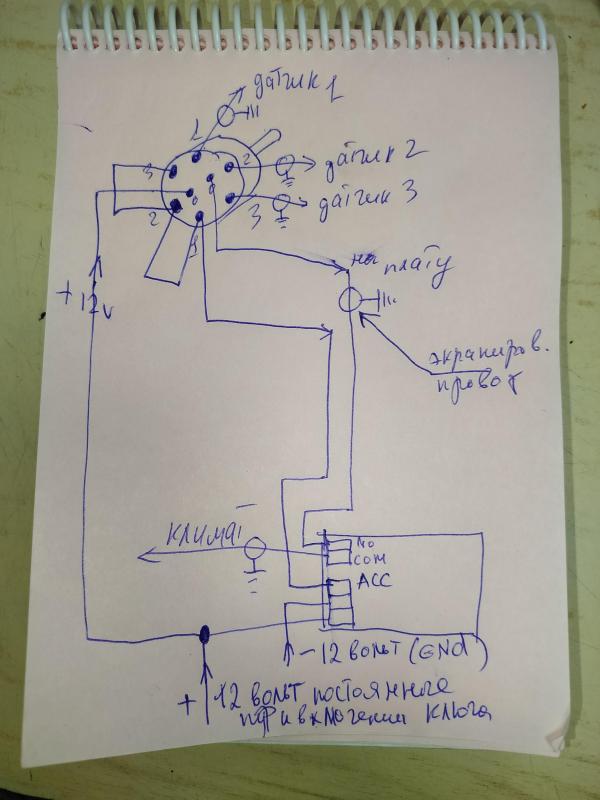 датчик 1
1
2
датчик 2
3
датчик 3
3
2
1
на плату
+12v
экраниров.
провод
климат
NO
COM
ACC
- 12 вольт (GNd)
+ 12 вольт постоянные
при включении ключа